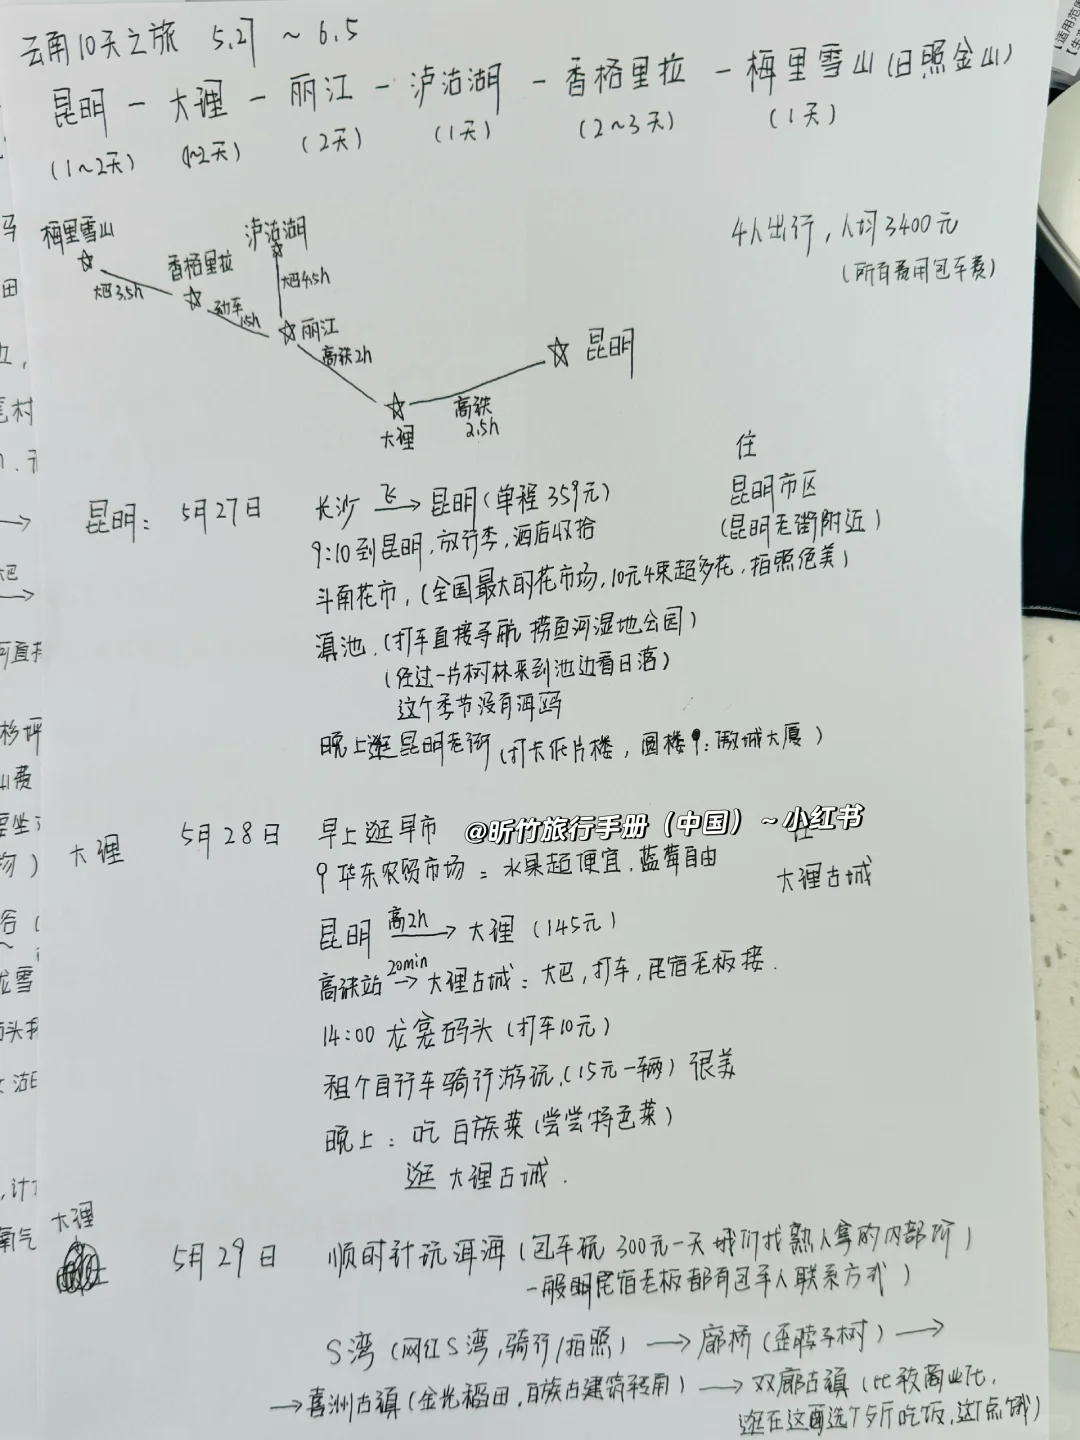 云南10天之旅 5.27 ~ 6.5
昆明 - 大理 - 丽江 - 泸沽湖 - 香格里拉 - 梅里雪山(日照金山)
(1~2天) (1~2天) (2天) (1天) (2~3天) (1天)
4人出行，人均3400元
(所有费用包车费)
梅里雪山
大巴3.5h
香格里拉
动车
1.5h
泸沽湖
大巴4.5h
丽江
高铁2h
大理
高铁
2.5h
昆明
昆明： 5月27日
长沙 飞→ 昆明(单程359元)
9:10到昆明，放行李，酒店收拾
斗南花市，(全国最大的花市场，10元4束超多花，拍照绝美)
滇池，(打车直接导航 捞鱼河湿地公园)
(经过一片树林来到池边看日落)
这个季节没有海鸥
晚上逛昆明老街(打卡低片楼，圆楼：傲城大厦)
住
昆明市区
(昆明老街附近)
大理 5月28日
早上逛早市
华东农贸市场：水果超便宜，蓝莓自由
昆明 高2h→ 大理(145元)
高铁站 20min→ 大理古城：大巴，打车，民宿老板接.
14:00 龙龛码头(打车10元)
租个自行车骑行游玩，(15元一辆)很美
晚上：吃 白族菜(尝尝特色菜)
逛 大理古城.
住
大理古城
@昕竹旅行手册（中国）~小红书
大理
5月29日
顺时针玩洱海(包车玩 300元一天 我们找熟人拿的内部价)
一般民宿老板都有包车人联系方式)
S湾(网红S湾，骑行/拍照) → 廊桥(歪脖子树) →
→ 喜洲古镇(金光稻田，白族古建筑转角) → 双廊古镇(比较商业化，
逛在这再选个餐厅吃饭，这个点饿)